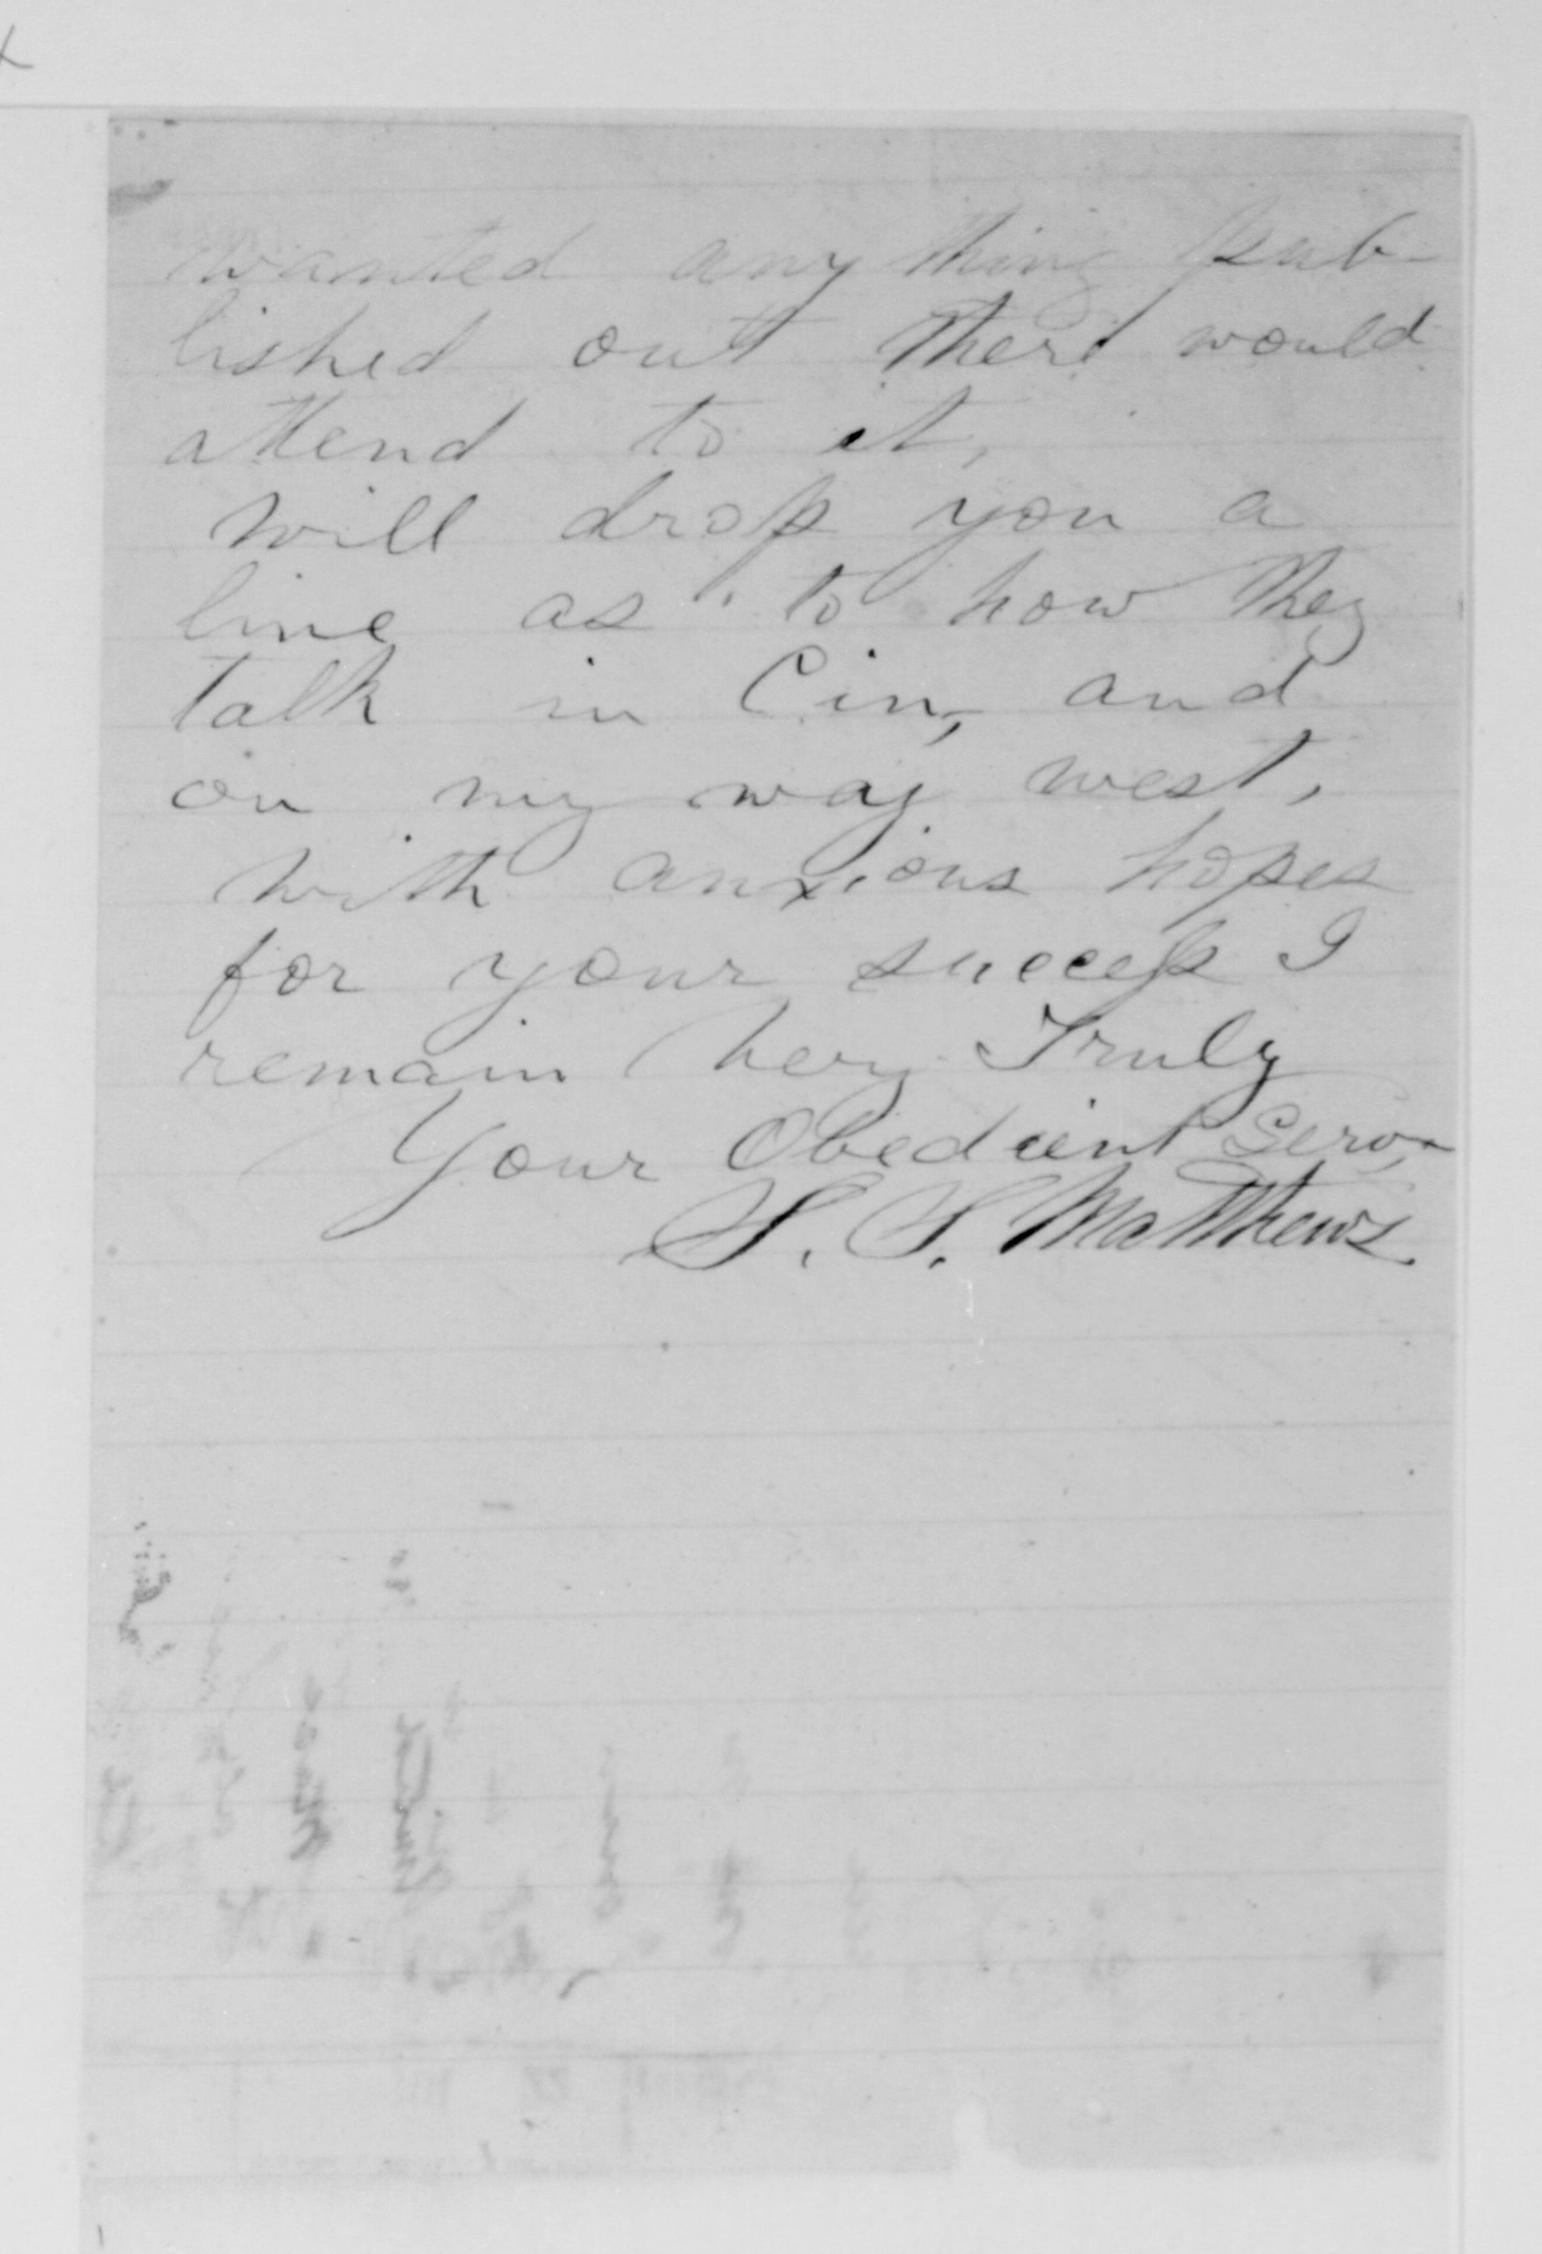 wanted any thing pub-
lished out there would
attend to it,
Will drop you a
line as to how they
talk in Cin, and
on my way west,
With anxious hopes
for your success I
remain Very Truly
Your Obedient Serv,
S. S. Matthews